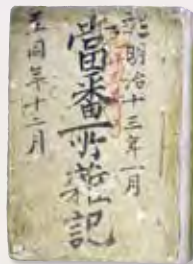 明治十三年一月
當番所雑記
至同年十二月